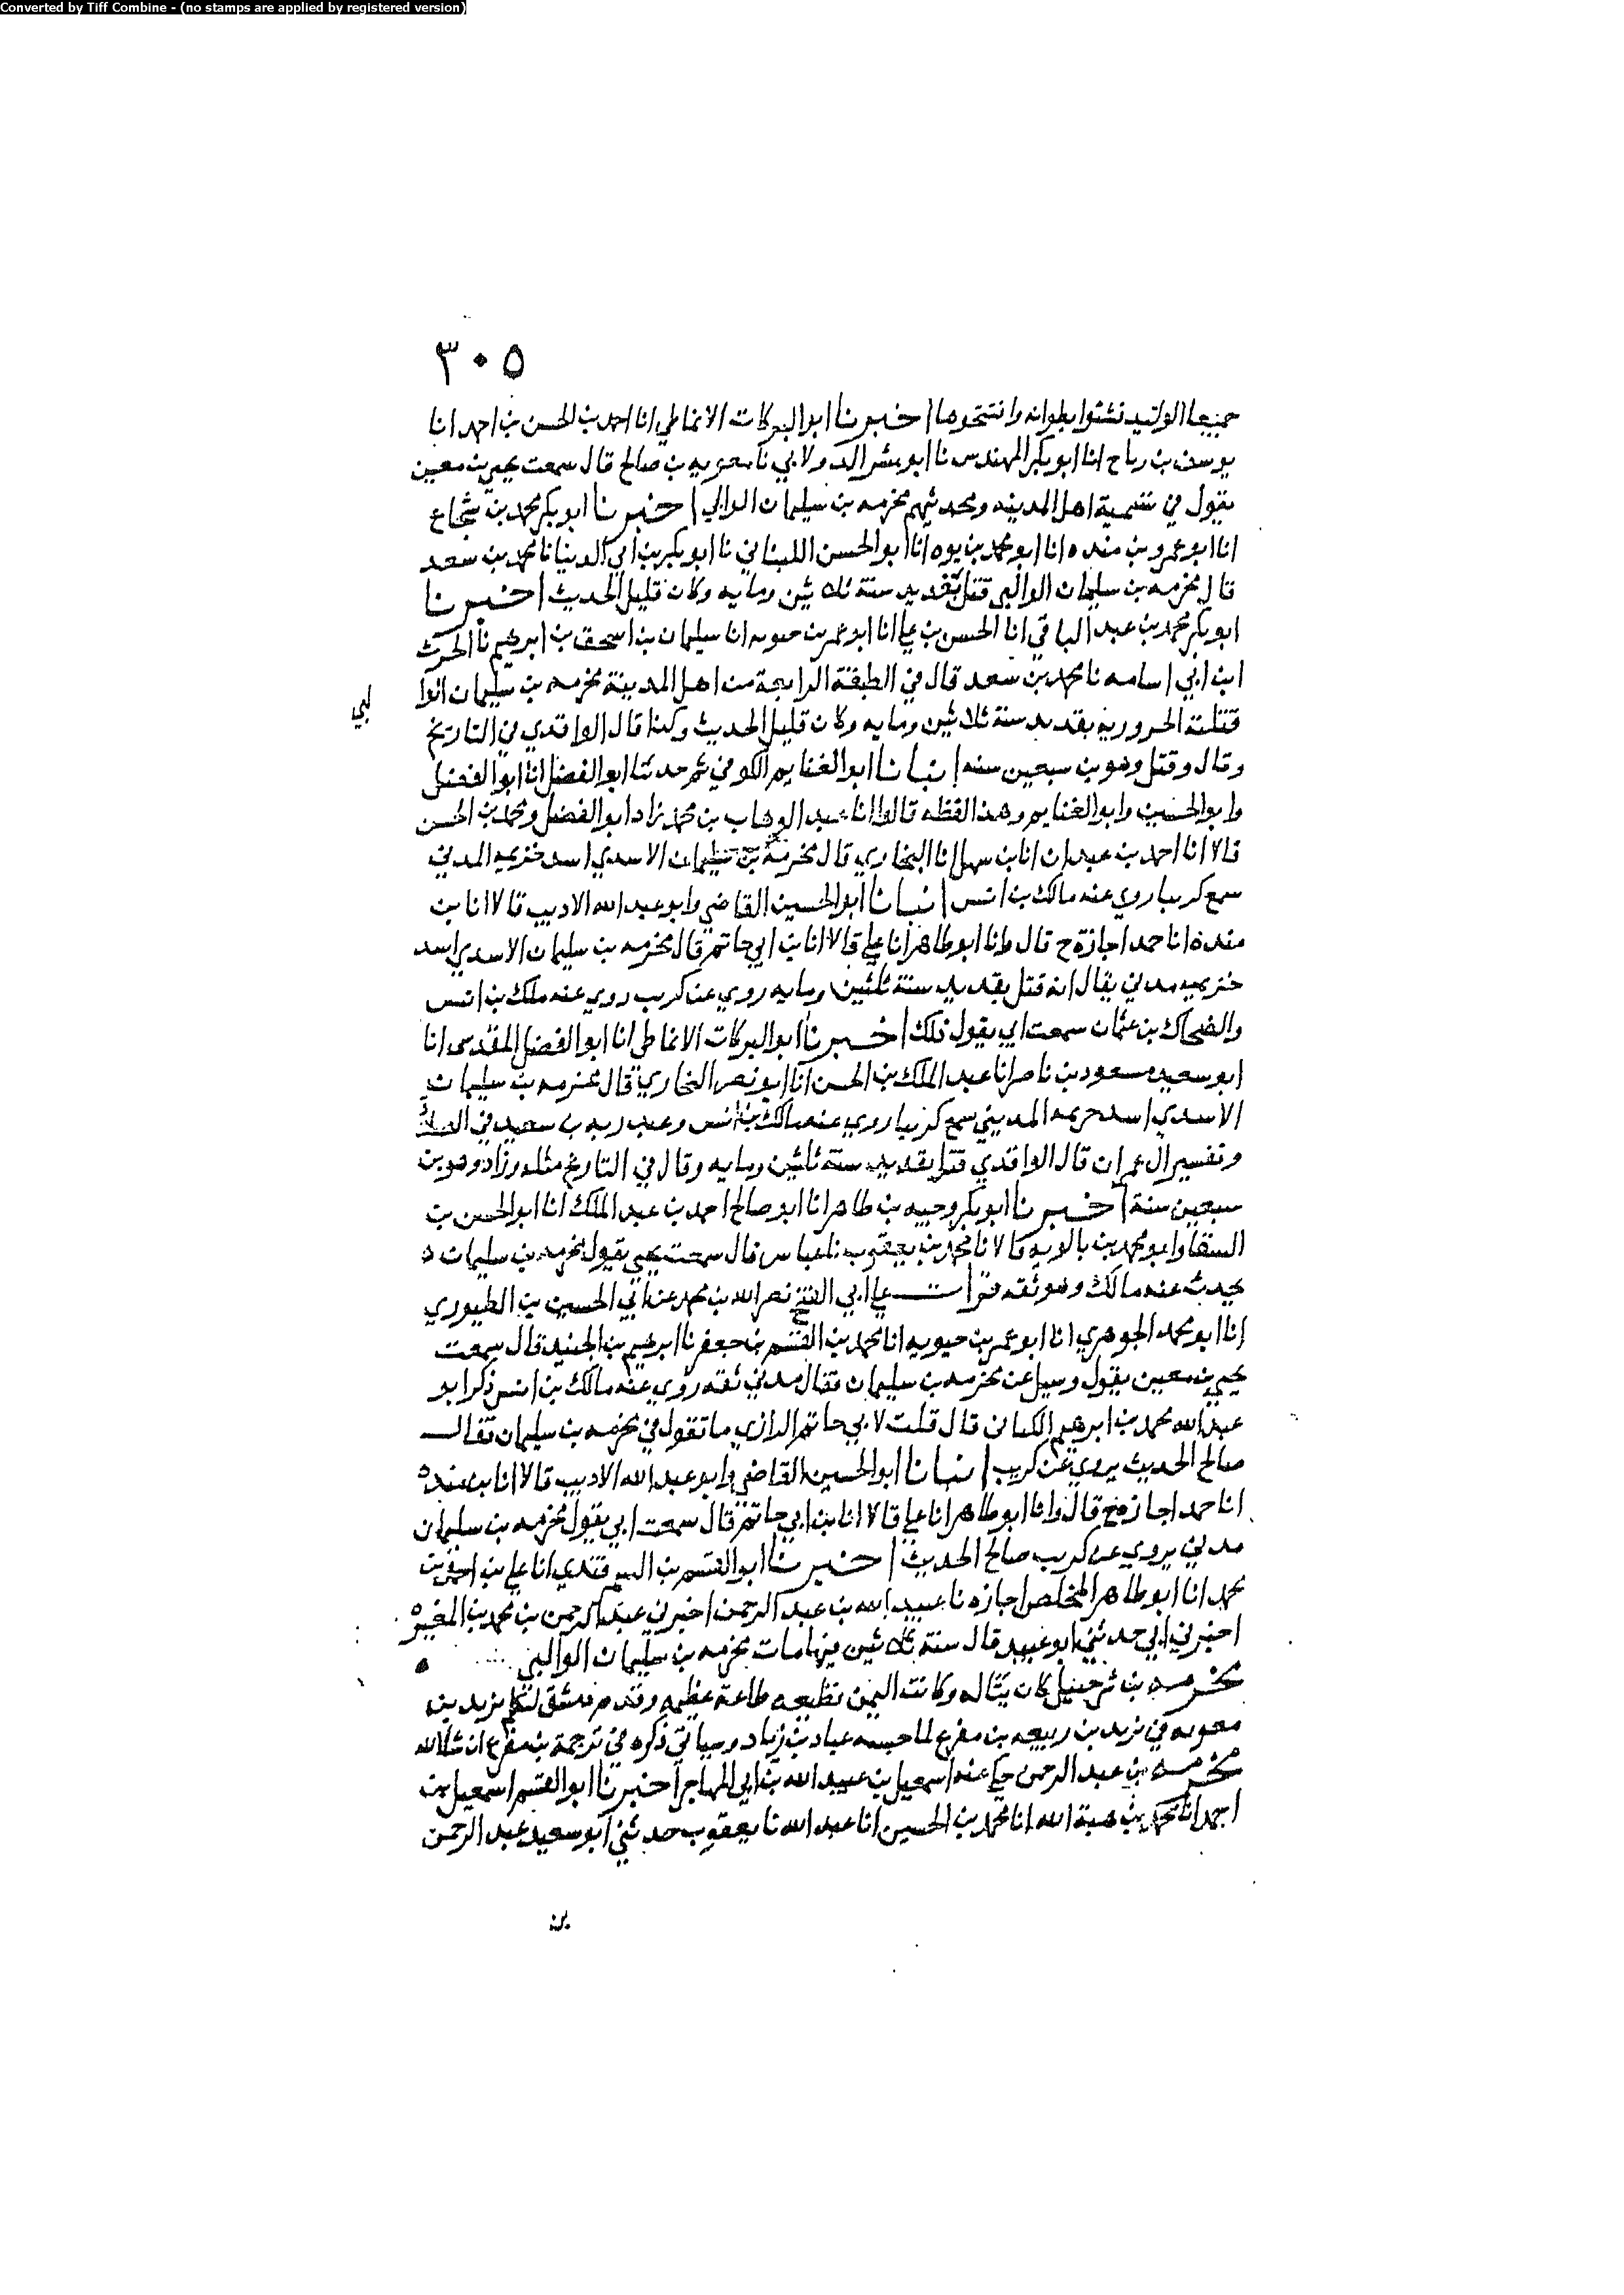 Converted by Tiff Combine - (no stamps are applied by registered version)
٣٠٥
اخبرنا ابو البركات الانماطي انا احمد بن الحسن بن احمد انا
يوسف بن رباح انا ابو بكر المهندس نا ابو بشر الدولابي نا معويه بن صالح قال سمعت يحيى بن معين
يقول في تسمية اهل المدينه ومحدثيهم مخرمه بن سليمان الوالبي اخبرنا ابو بكر محمد بن شجاع
انا ابو عمرو بن منده انا ابو محمد بن يوه انا ابو الحسن اللبناني نا ابو بكر بن ابي الدنيا نا محمد بن سعد
قال مخرمه بن سليمان الوالبي قتل بقديد سنة ثلاثين ومايه وكان قليل الحديث اخبرنا
ابو بكر محمد بن عبد الباقي انا الحسن بن علي انا ابو عمر بن حيويه انا سليمان بن اسحق بن ابرهيم نا الحرث
ابن ابي اسامه نا محمد بن سعد قال في الطبقة الرابعة من اهل المدينة مخرمه بن سليمان الوا
لبي
قتلته الحروريه بقديد سنة ثلاثين ومايه وكان قليل الحديث وكذا قال الواقدي في التاريخ
وقال وقتل وهو بن سبعين سنه انبانا ابو الغنايم الكوفي ثم حدثنا ابو الفضل انا ابو الفضل
وابو الحسين وابو الغنايم وهذا لفظه قالوا انا عبد الوهاب بن محمد زاد ابو الفضل ومحمد بن الحسن
قالا انا احمد بن عبدان انا بن سهل انا البخاري قال مخرمة بن سليمان الاسدي اسد خزيمه المدني
سمع كريبا روي عنه مالك بن انس انبانا ابو الحسين القاضي وابو عبد الله الاديب قالا انا بن
منده انا حمد اجازة ح قال وانا ابو طاهر انا علي قالا انا بن ابي حاتم قال مخرمه بن سليمان الاسدي اسد
خزيمه مدني يقال انه قتل بقديد سنة ثلثين ومايه روي عن كريب روي عنه ملك بن انس
والضحاك بن عثمان سمعت ابي يقول ذلك اخبرنا ابو البركات الانماطي انا ابو الفضل المقدسي انا
ابو سعيد مسعود بن ناصر انا عبد الملك بن الحسن انا ابو نصر البخاري قال مخرمه بن سليمان
الاسدي اسد خزيمه المديني سمع كريبا روي عنه مالك بن انس وعبد ربه بن سعيد في
وتفسير ال عمران قال الواقدي قتل بقديد سنة ثلثين ومايه وقال في التاريخ مثله وزاد وهو بن
سبعين سنة اخبرنا ابو بكر وجيه بن طاهر انا ابو صالح احمد بن عبد الملك انا ابو الحسن بن
السقا وابو محمد بن بالويه قالا نا محمد بن يعقوب نا عباس قال سمعت يحيى يقول مخرمه بن سليمان
يحدث عنه مالك وهو ثقه قرات علي ابي الفتح نصر الله بن محمد عن ابي الحسين بن الطيوري
انا ابو محمد الجوهري انا ابو عمر بن حيويه انا محمد بن القسم بن جعفر نا ابرهيم بن الجنيد قال سمعت
يحيى بن معين يقول وسيل عن مخرمه بن سليمان فقال مدني ثقه روي عنه مالك بن انس ذكر ابو
عبد الله محمد بن ابرهيم الكناني قال قلت لابي حاتم الرازي ما تقول في مخرمه بن سليمان فقال
صالح الحديث يروي عن كريب انبانا ابو الحسين القاضي وابو عبد الله الاديب قالا انا بن منده
انا حمد اجازه ح قال وانا ابو طاهر انا علي قالا انا بن ابي حاتم قال سمعت ابي يقول مخرمه بن سليمان
مدني يروي عن كريب صالح الحديث اخبرنا ابو القسم بن السمرقندي انا علي بن احمد بن
محمد انا ابو طاهر المخلص اجازه نا عبيد الله بن عبد الرحمن اخبرني عبد الرحمن بن محمد بن المغيره
اخبرني ابي حدثني ابو عبيد قال سنة ثلاثين فيها مات مخرمه بن سليمان الوالبي
مخرمه بن شرحبيل كان يتاله وكانت اليمن تطيعه طاعة عظيمه وقدم دمشق لتكلم يزيد بن
معويه في يزيد بن ربيعه بن مفرغ لما حبسه عباد بن زياد وسياتي ذكره في ترجمة بن مفرغ ان شا الله
مخرمه بن عبد الرحمن حكى عنه اسمعيل بن عبيد الله بن ابي المهاجر اخبرنا ابو القسم اسمعيل بن
احمد انا محمد بن هبة الله انا محمد بن الحسين انا عبد الله نا يعقوب حدثني ابو سعيد عبد الرحمن
بن